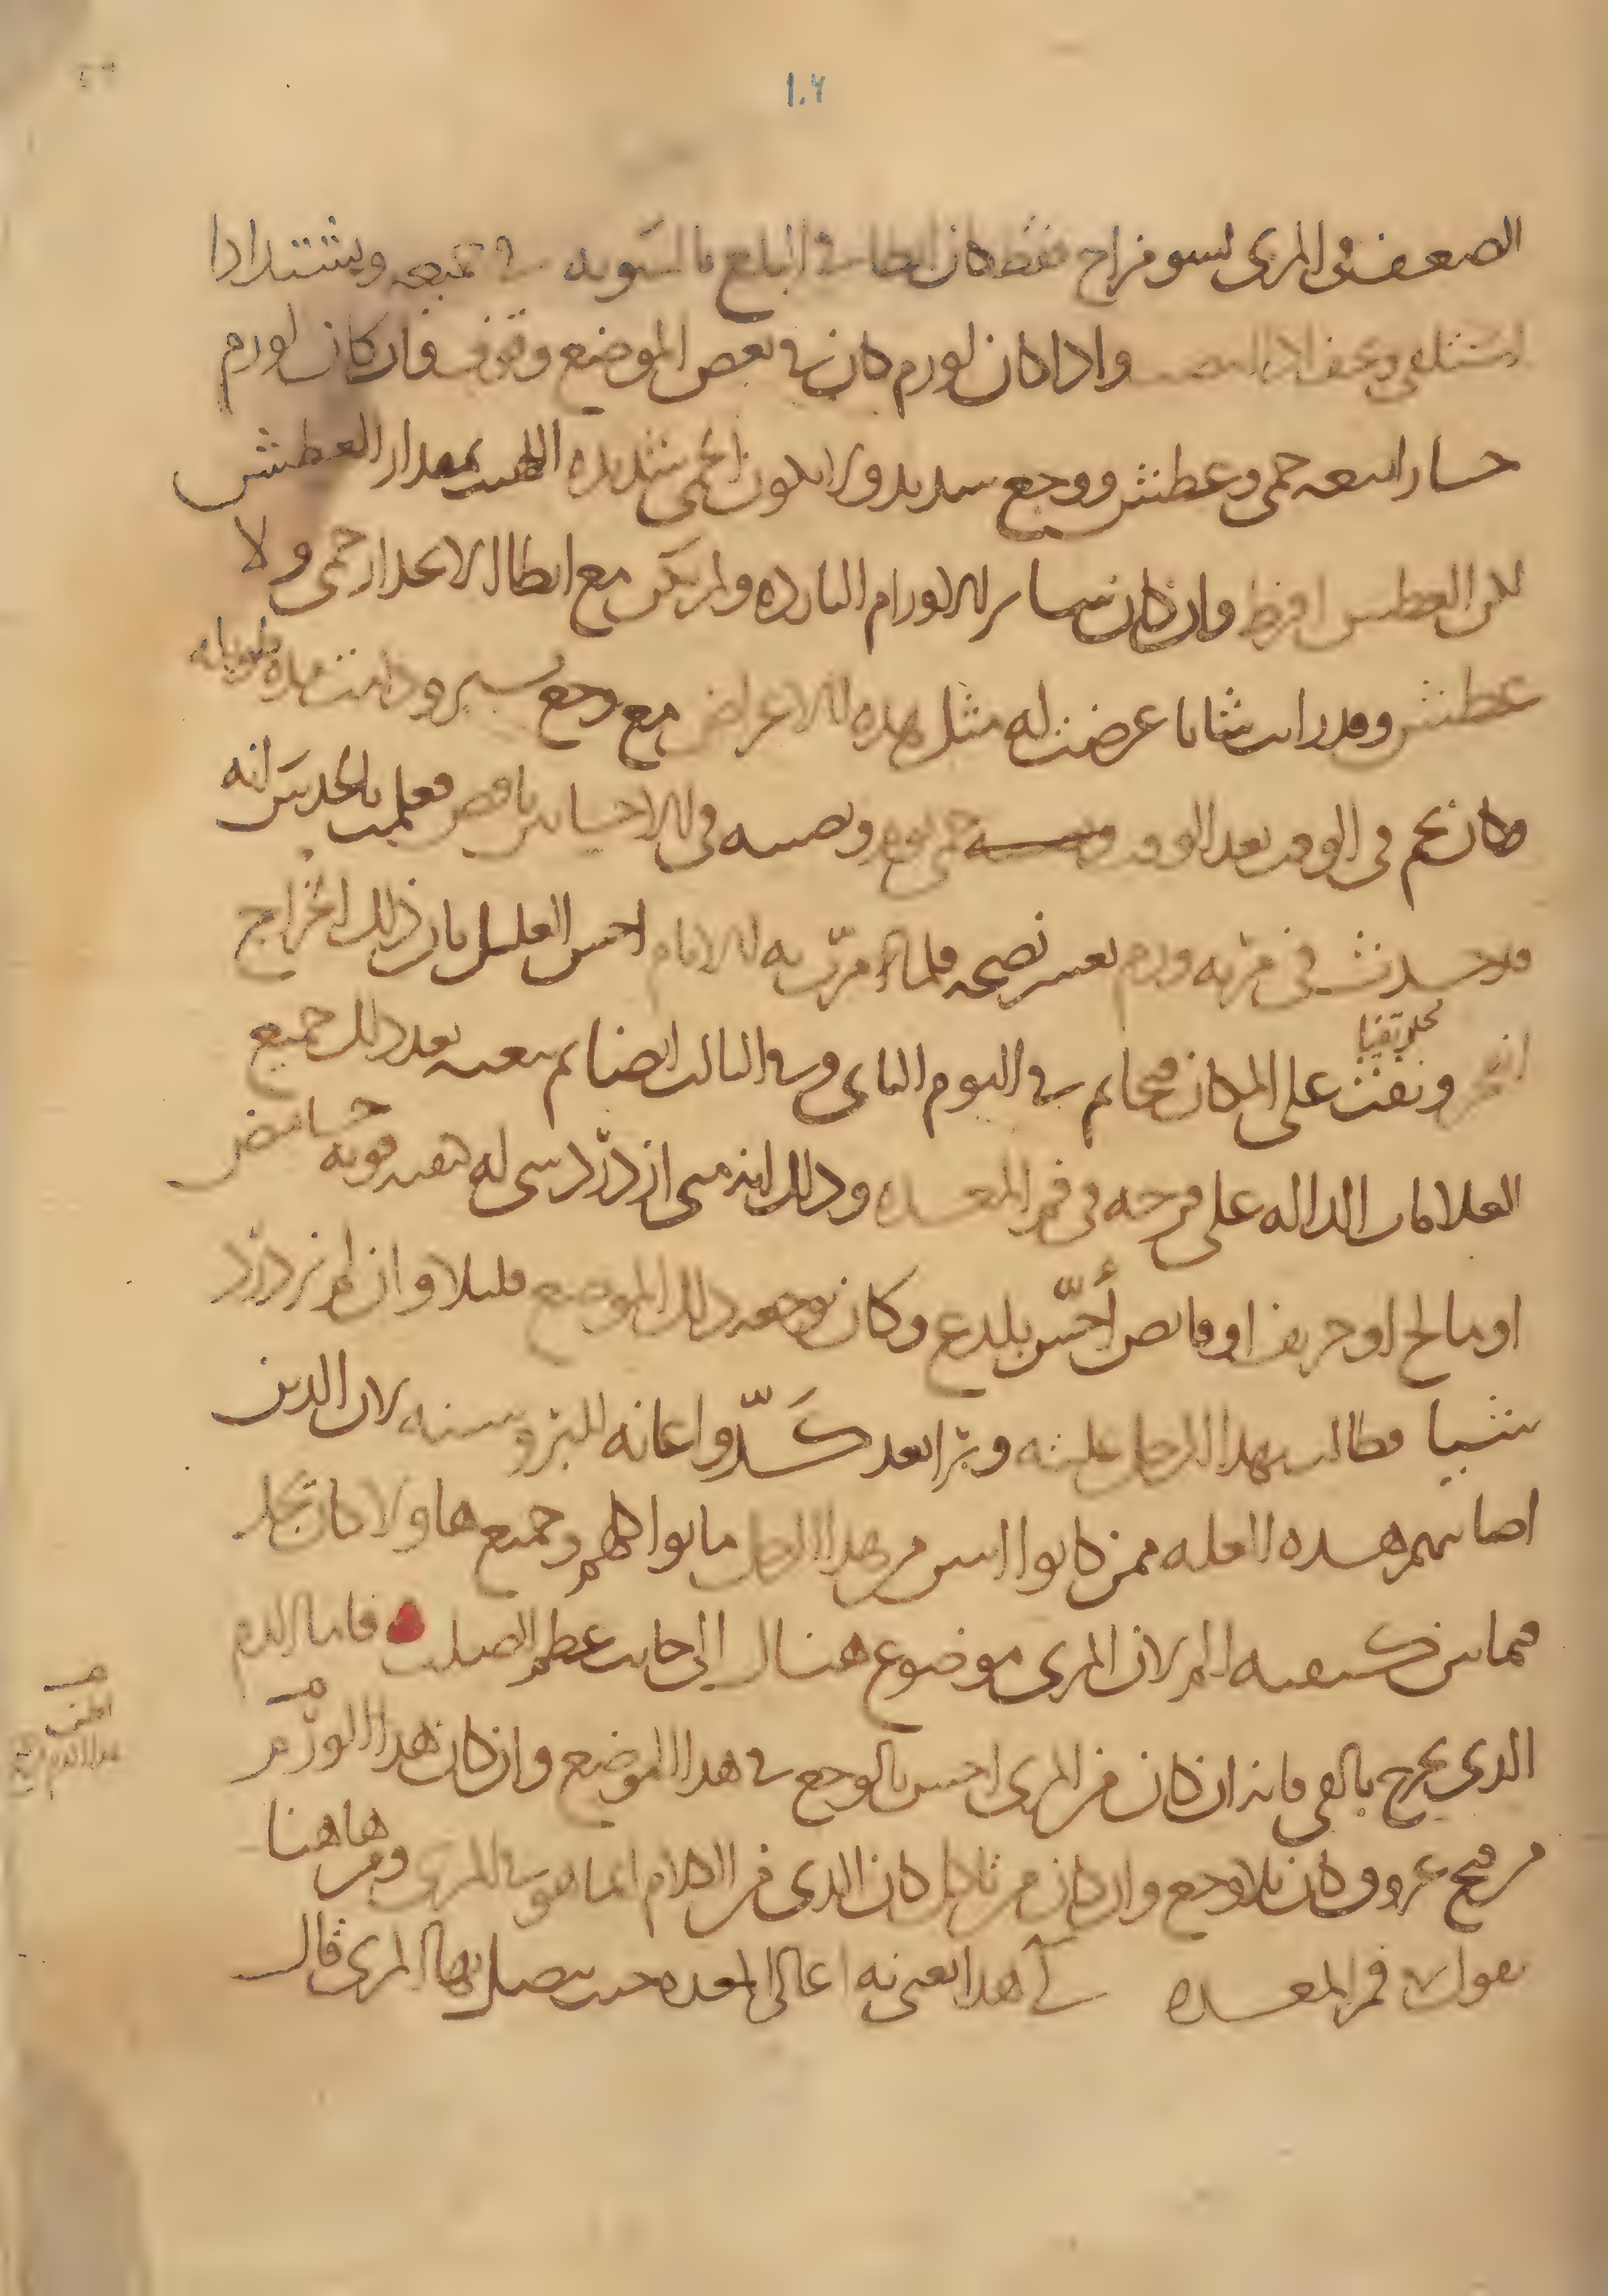 ١٠٦
الضعف في المرى لسو مزاج فقط كان ابطا في البلع بالسويه في جميعه ويشتد اذا
استلقى ويخف اذا انتصب واذا كان لورم كان في بعض الموضع وقوف فان كان لورم
حار اتبعه حمى وعطش ووجع شديد ولا يكون الحمى شديده اللهيب بمقدار العطش
لكن العطش افرط وان كان لساير الاورام البارده ولم يكن مع ابطا الانحدار حمى ولا
عطش وقد رايت شابا عرضت له مثل هذه الاعراض مع وجع يسير ودامت مده طويله
وكان يحم في الوقت بعد الوقت حمى يوم ويصيبه في الاحايين نافض فعلمت بالحدس انه
قد حدث في مريه ورم يعسر نضجه فلما مرت به الايام احس العليل بان ذلك الخراج
انفجر ونفث على المكان قيحا ثم في اليوم الثاني وفي الثالث ايضا ثم تبعه بعد ذلك جميع
العلامات الداله على قرحه في فم المعده وذلك انه متى ازدرد شي له كيفيه قويه حامض
او مالح او حريف او قابض أحسّ بلدع وكان يوجعه ذلك الموضع قليلا وان لم يزدرد
شيا فطالت بهذا الرجل علته وبرا بعد كدّ واعانه للبرو سنه لان الذين
اصابتهم هذه العله ممن كانوا اسن من هذا الرجل ماتوا كلهم وجميع هاولا كان يجد
فيما بين كتفيه الم لان المرى موضوع هناك الى جانب عظم الصلب فاما الدم
الذى يخرج بالقى فانه ان كان من المرى احس بالوجع في هذا الموضع وان كان هذا الورم
من فتح عروق كان بلا وجع وان كان من تاكل كان الذى من الكلام انما هو في المرى ومن هاهنا
يقول في فم المعده لى هذا يعنى به اعالى المعده حيث يتصل بها المرى قال